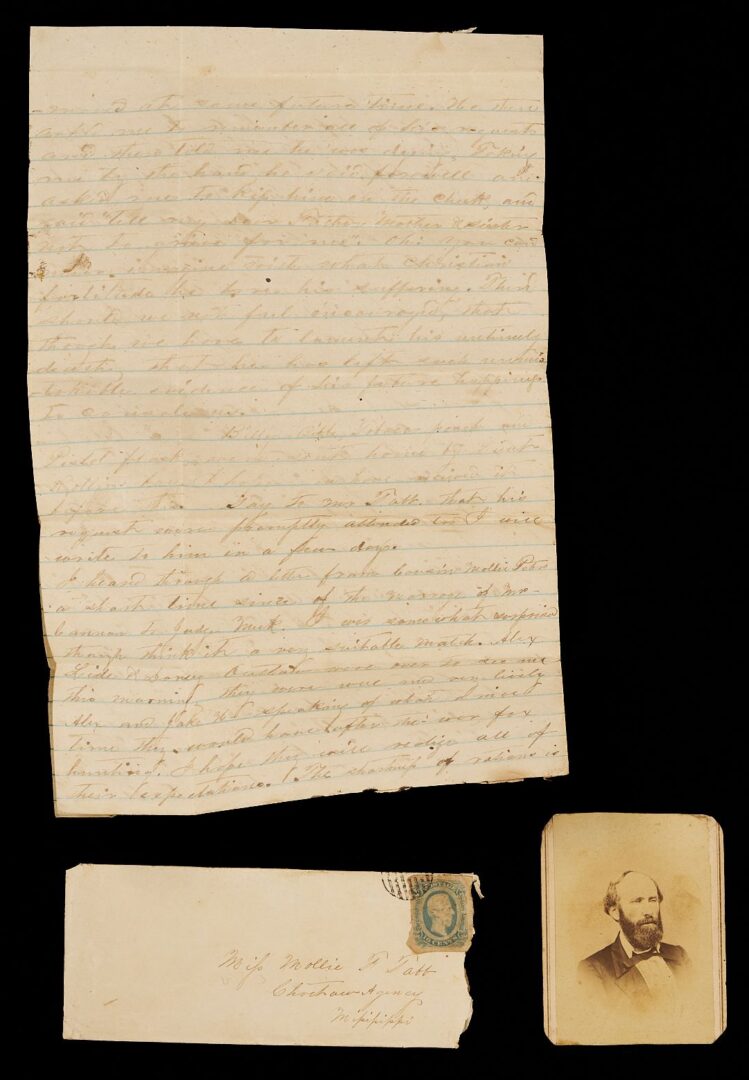 at some future time. He then
asked me to remember all of his requests
and then told me he was dying. Taking
me by the hand he said farewell and
asked me to kiss him on the cheek, and
said "tell my dear Father Mother & sister
not to grieve for me". Oh! you can
imagine with what christian
fortitude he bore his suffering. Then
should we not feel encouraged, that
though we have to lament his untimely
death, that he has left such unmis
takable evidence of his future happiness
to console us.
Billy
Pistol flask, were sent home by Lieut
before this. Say to Mr Tabb that his
request was promptly attended too I will
write to him in a few days.
I heard through a letter from Cousin Mollie
a short time since of the marriage of Mr
Cannon to Judy. I was somewhat surprised
though think it a very suitable match. Alex
were over to see me
this morning they were well and very lively
Alex and Jake speaking of what a nice
time they would have after the war fox
hunting. I hope they will realize all of
their expectations. The shortness of rations is
Miſs Mollie F Tabb
Choctaw Agency
Miſsiſsippi